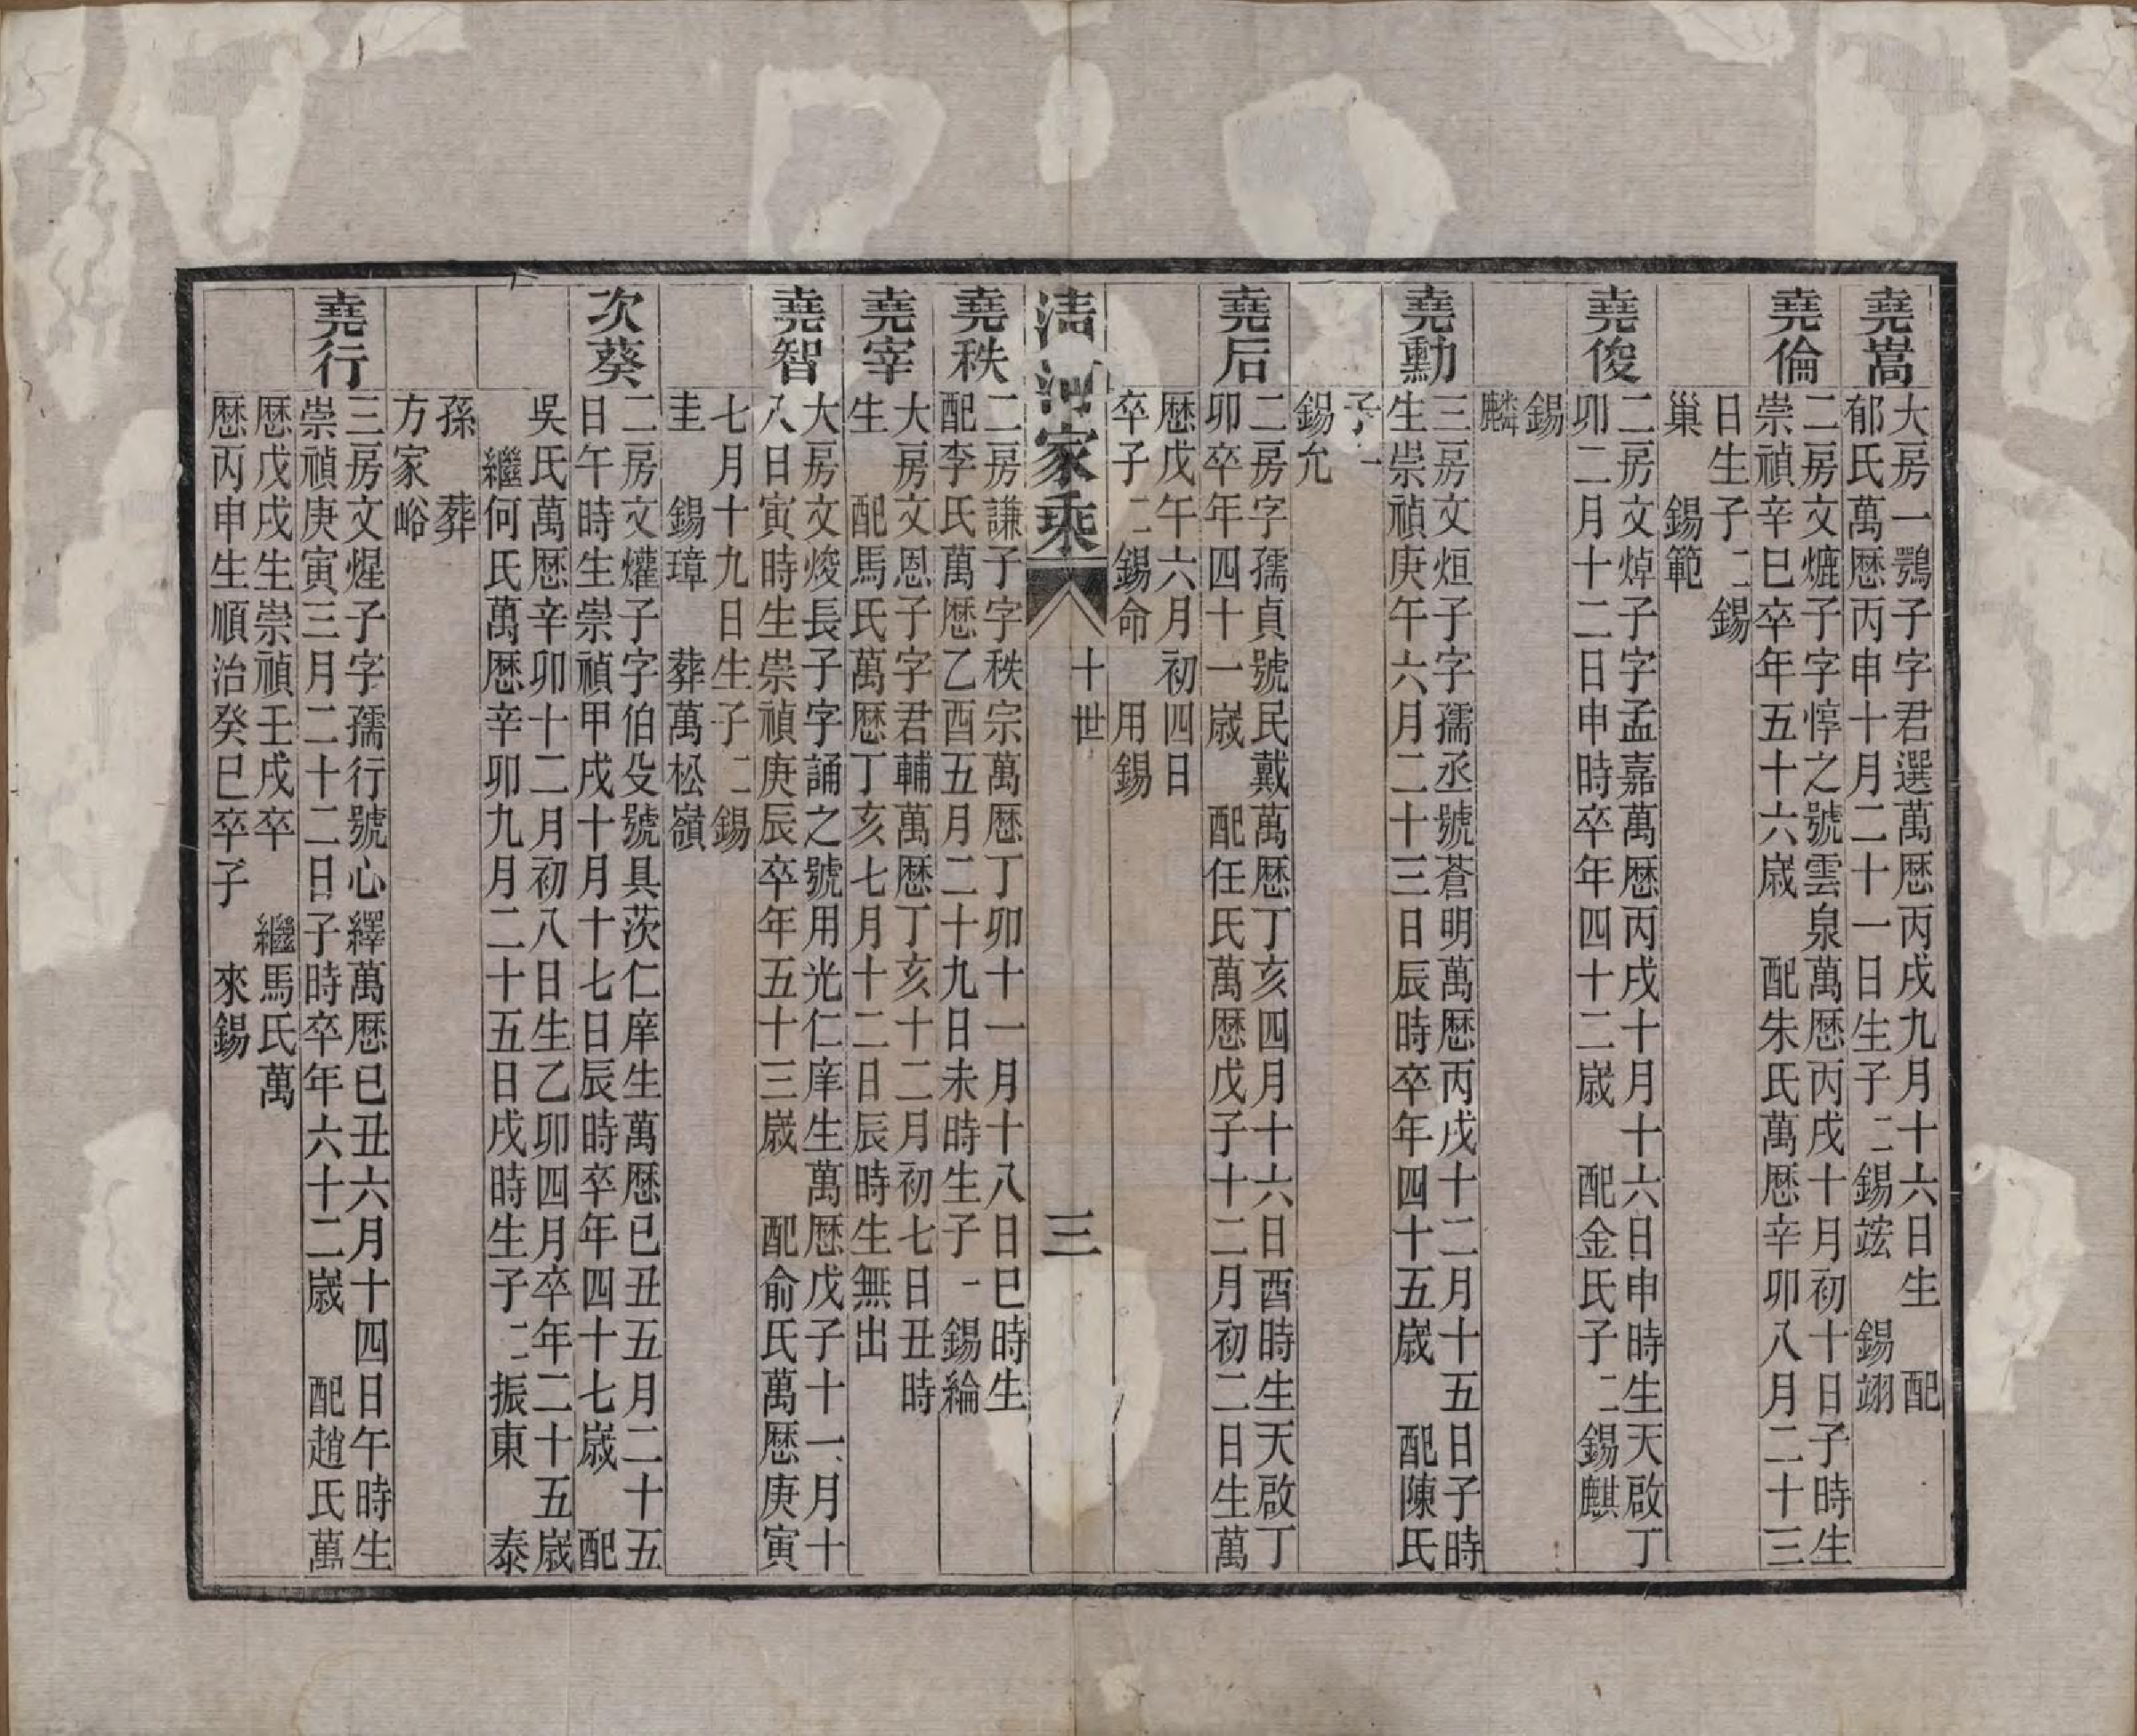 堯嵩
大房一鶚子字君選萬歷丙戌九月十六日生　配
郁氏萬歷丙申十月二十一日生子二錫竤　錫翊
堯倫
二房文熝子字惇之號雲泉萬歷丙戌十月初十日子時生
崇禎辛巳卒年五十六歲　配朱氏萬歷辛卯八月二十三
日生子二錫
巢　錫範
堯俊
二房文焯子字孟嘉萬歷丙戌十月十六日申時生天啟丁
卯二月十二日申時卒年四十二歲　配金氏子二錫麒
錫
麟
堯勳
三房文烜子字孺丞號蒼明萬歷丙戌十二月十五日子時
生崇禎庚午六月二十三日辰時卒年四十五歲　配陳氏
子一
錫允
堯后
二房字孺貞號民戴萬歷丁亥四月十六日酉時生天啟丁
卯卒年四十一歲　配任氏萬歷戊子十二月初二日生萬
歷戊午六月初四日
卒子二錫命　用錫
清河家乘
十世
三
堯秩
二房謙子字秩宗萬歷丁卯十一月十八日巳時生
配李氏萬歷乙酉五月二十九日未時生子一錫綸
堯宰
大房文恩子字君輔萬歷丁亥十二月初七日丑時
生　配馬氏萬歷丁亥七月十二日辰時生無出
堯智
大房文焌長子字誦之號用光仁庠生萬歷戊子十一月十
八日寅時生崇禎庚辰卒年五十三歲　配俞氏萬歷庚寅
七月十九日生子二錫
圭　錫璋　葬萬松嶺
次葵
二房文爟子字伯殳號具茨仁庠生萬歷己丑五月二十五
日午時生崇禎甲戌十月十七日辰時卒年四十七歲　配
吳氏萬歷辛卯十二月初八日生乙卯四月卒年二十五歲
繼何氏萬歷辛卯九月二十五日戌時生子二振東　泰
孫　葬
方家峪
堯行
三房文煋子字孺行號心繹萬歷己丑六月十四日午時生
崇禎庚寅三月二十二日子時卒年六十二歲　配趙氏萬
歷戊戌生崇禎壬戌卒　繼馬氏萬
歷丙申生順治癸巳卒子　來錫